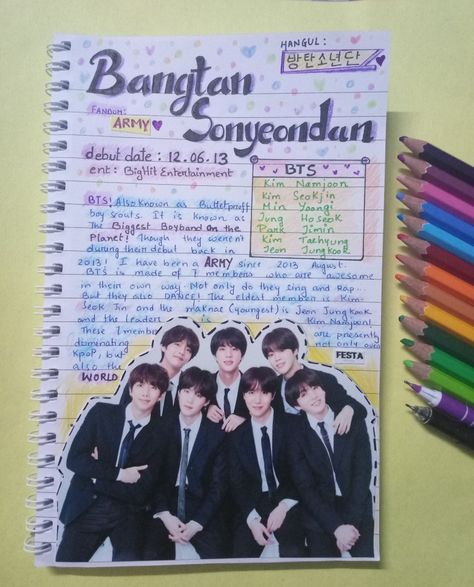 HANGUL :
방탄소년단
Bangtan
Sonyeondan
FANDOM:
ARMY
debut date : 12.06.13
ent : BigHit Entertainment
BTS
Kim Namjoon
Kim Seokjin
Min Yoongi
Jung Hoseok
Park Jimin
Kim Taehyung
Jeon Jungkook
BTS! Also known as Bulletproof
boy scouts. It is known as
The Biggest Boyband On the
Planet! Though they weren't
during their debut back in
2013! I have been a ARMY since 2013 August.
BTS is made of 7 members who are awesome
in their own way. Not only do they sing and Rap...
But they also DANCE! The eldest member is Kim
Seok Jin and the maknae (youngest) is Jeon Jungkook
and the leader is Kim Namjoon!
These 7 members are presently
dominating not only over
Kpop, but
also the
WORLD
FESTA